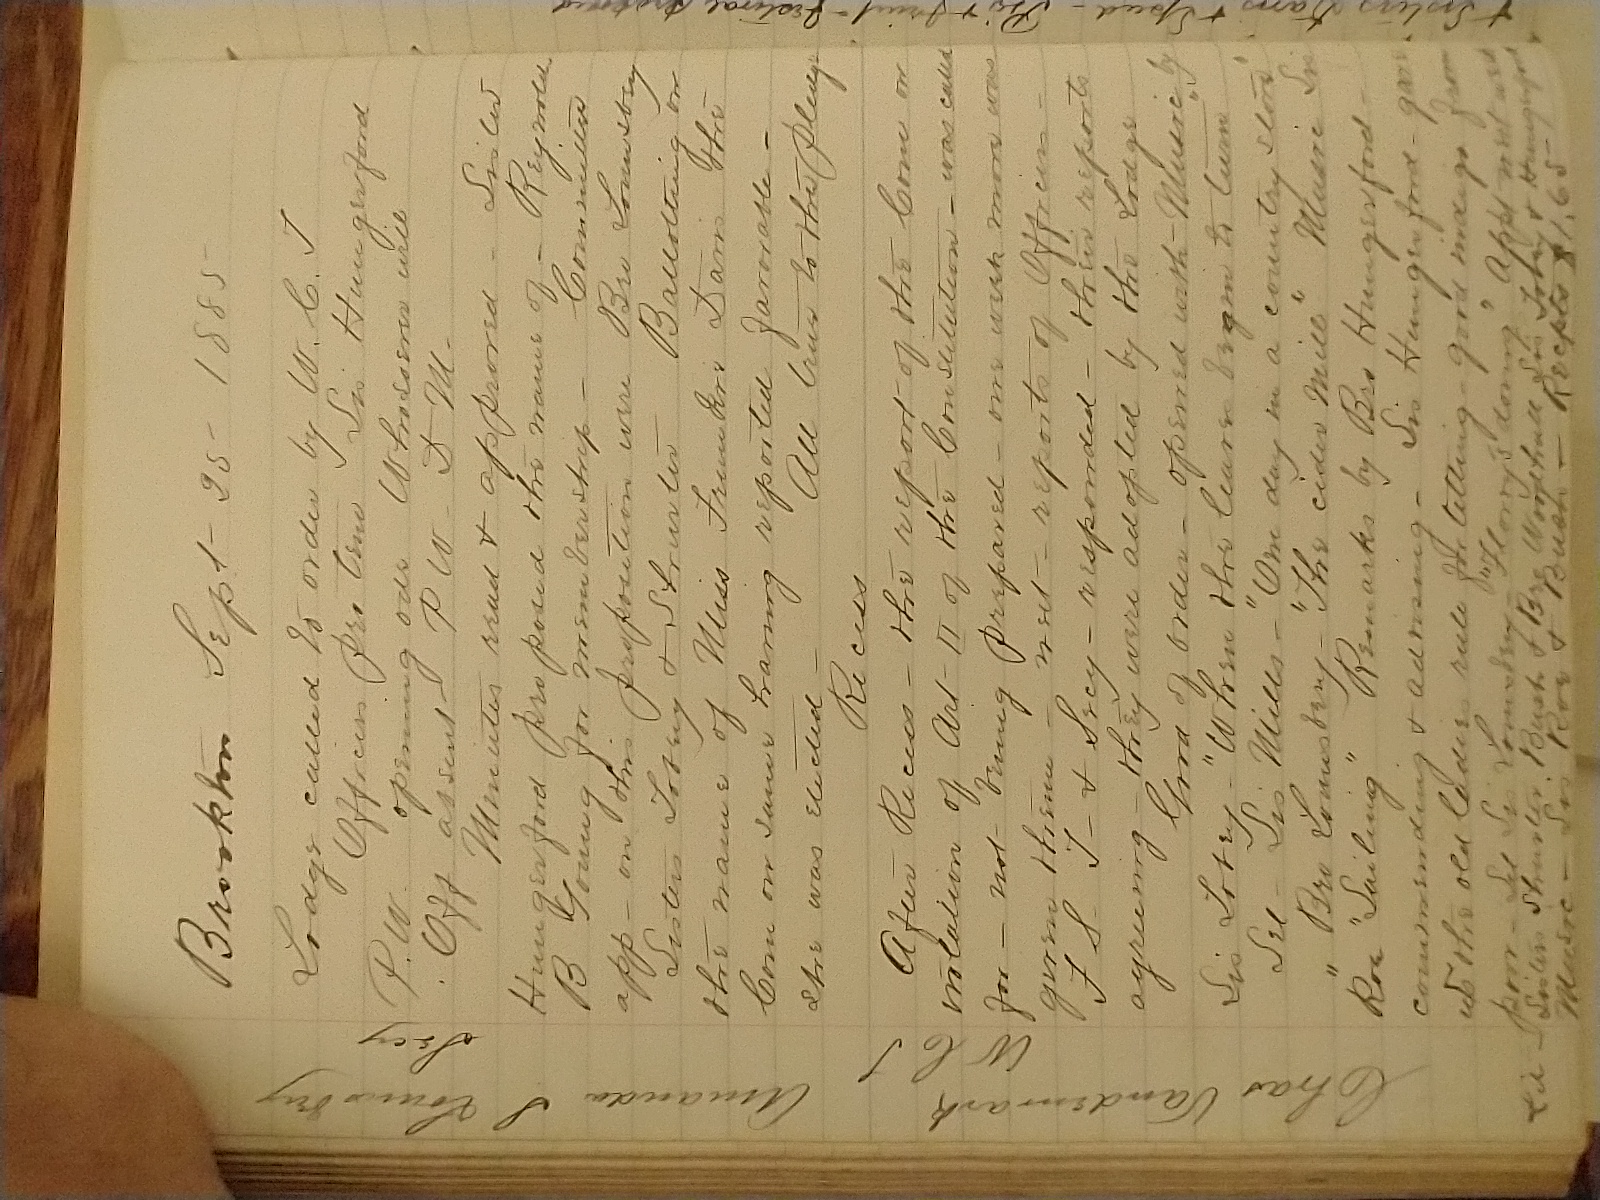 Brookton Sept 25 1885
Lodge called to order by W. C. T
Officers pro tem Sis Hungerford
P.W. opening ode Whosoever will
Off absent P W - D M.
Minutes read & approved - Sister
Hungerford proposed the name of - Reynolds
B Young for membership - Committee
app - on this proposition were Bro Lounsbery
Sisters Tobey & Shurter Ballotting on
the name of Miss Frankie Davis the
Com on same having reported favorable -
she was elected - All true to the pledge
Recess
After Recess - the report of the Com on
violation of Art II of the Constitution - was called
for - not being prepared - one week more was
given them - next - reports of Officers -
F S. T - & Secy - responded - their reports
agreeing - they were adopted by the Lodge
Good of order - opened with Music by
Sis Tobey - "When the leaves begin to turn"
Sel - Sis Mills - "One day in a country store"
„ Bro Lounsbery - "The cider mill" Music Sis
Roe "Sailing" Remarks by Bro Hungerford -
commending & advising - Sis Hungerford - gave
us the old ladies rule for telling - good indigo from
poor - Sel Sis Lounsbery - "Florry's doing" Appt next week
Lit - Sisters Shurter Bush & Bro Woodhull Sis Tobey & Hungerford
Music - Sis Roe & Bush - Recpts $1.65
Amanda S Lounsbery
Secy
Chas Vandemark
W C T
& Sisters Davis & Speed - Pie & fruit - festival